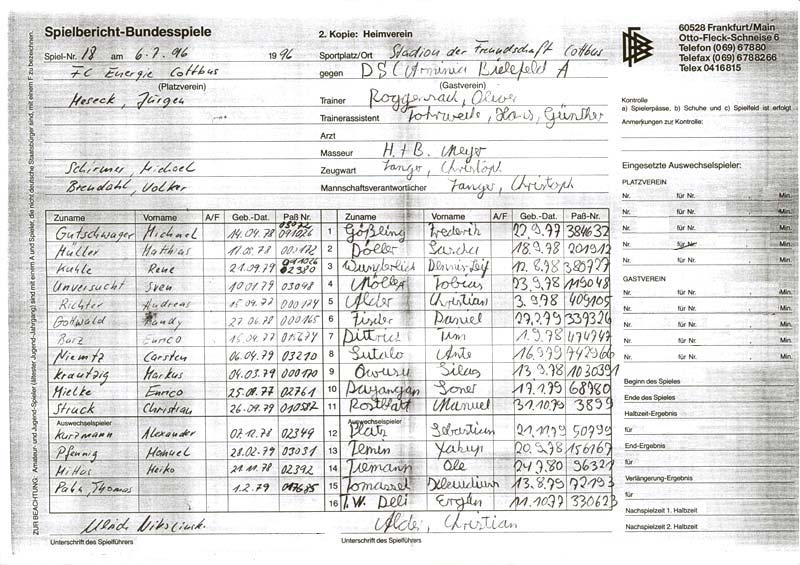 Spielbericht-Bundesspiele
2. Kopie: Heimverein
60528 Frankfurt/Main
Otto-Fleck-Schneise 6
Telefon (069) 67880
Telefax (069) 6788266
Telex 0416815
Spiel-Nr. 18 am 6.7.96 1996 Sportplatz/Ort Stadion der Freundschaft Cottbus
FC Energie Cottbus gegen DSC Arminia Bielefeld A
(Platzverein) (Gastverein)
Heseck, Jürgen Trainer Roggenrad, Oliver
Trainerassistent Hans, Günther
Arzt
Masseur H.+B. Meyer
Schirmer, Michael Zeugwart Tanger, Christoph
Brendahl, Volker Mannschaftsverantwortlicher Tanger, Christoph
Kontrolle
a) Spielerpässe, b) Schuhe und c) Spielfeld ist erfolgt
Anmerkungen zur Kontrolle:
Eingesetzte Auswechselspieler:
PLATZVEREIN
Nr. für Nr. Min.
Nr. für Nr. Min.
Nr. für Nr. Min.
Nr. für Nr. Min.
Nr. für Nr. Min.
GASTVEREIN
Nr. für Nr. Min.
Nr. für Nr. Min.
Nr. für Nr. Min.
Nr. für Nr. Min.
Nr. für Nr. Min.
Beginn des Spieles
Ende des Spieles
Halbzeit-Ergebnis
für
End-Ergebnis
für
Verlängerung-Ergebnis
für
Nachspielzeit 1. Halbzeit
Nachspielzeit 2. Halbzeit
Zuname Vorname A/F Geb.-Dat. Paß Nr. Zuname Vorname A/F Geb.-Dat. Paß-Nr.
Gutschwager Michael 14.04.78 1 Gößling Frederik 22.9.77 384632
Müller Matthias 11.08.78 000172 2 Döller Sascha 18.9.78 201912
Kuhle Rene 21.09.79 02380 3 Wunderlich Dennis Leif 12.8.78
Unversucht Sven 10.01.79 03048 4 Möller Tobias 23.9.78 119048
Richter Andreas 15.04.77 000174 5 Alder Christian 3.9.78 409105
Gottwald Randy 27.06.78 000165 6 Fischer Daniel 27.2.79 339326
Barz Enrico 15.04.77 015674 7 Dittrich Tim 1.9.78 474747
Niemtz Carsten 06.04.79 03210 8 Sutalo Ante 16.9.79 742966
Krautzig Markus 04.03.79 000170 9 Owusu Silas 13.9.78 1030391
Mielke Enrico 25.08.77 02761 10 Dayangan Soner 17.1.79 68980
Struck Christian 26.09.79 010582 11 Rostblatt Manuel 31.10.79 3899
Auswechselspieler Auswechselspieler
Kurzmann Alexander 07.12.78 02349 12 Platz Sebastian 21.11.79 50799
Pfennig Manuel 28.02.79 03031 13 Temin Yakup 20.9.78 156167
Mittas Heiko 21.11.78 02392 14 Tiemann Ole 24.7.80 96321
Thomas 1.2.79 017685 15 13.8.79 72193
16 T.W. Deli Ergün 11.10.77 330623
Ulrich Alder, Christian
Unterschrift des Spielführers Unterschrift des Spielführers